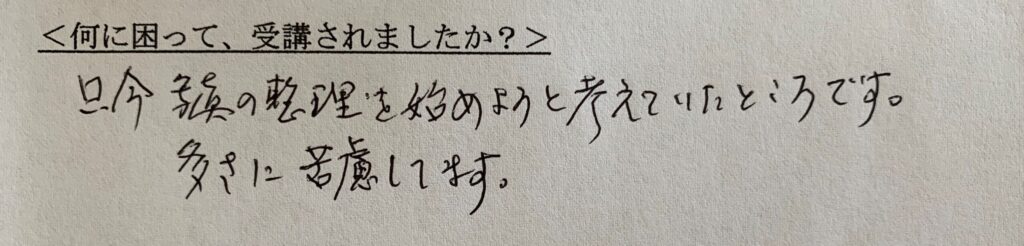 <何に困って、受講されましたか？>
只今 写真の整理を始めようと考えていたところです。
多さに苦慮してます。